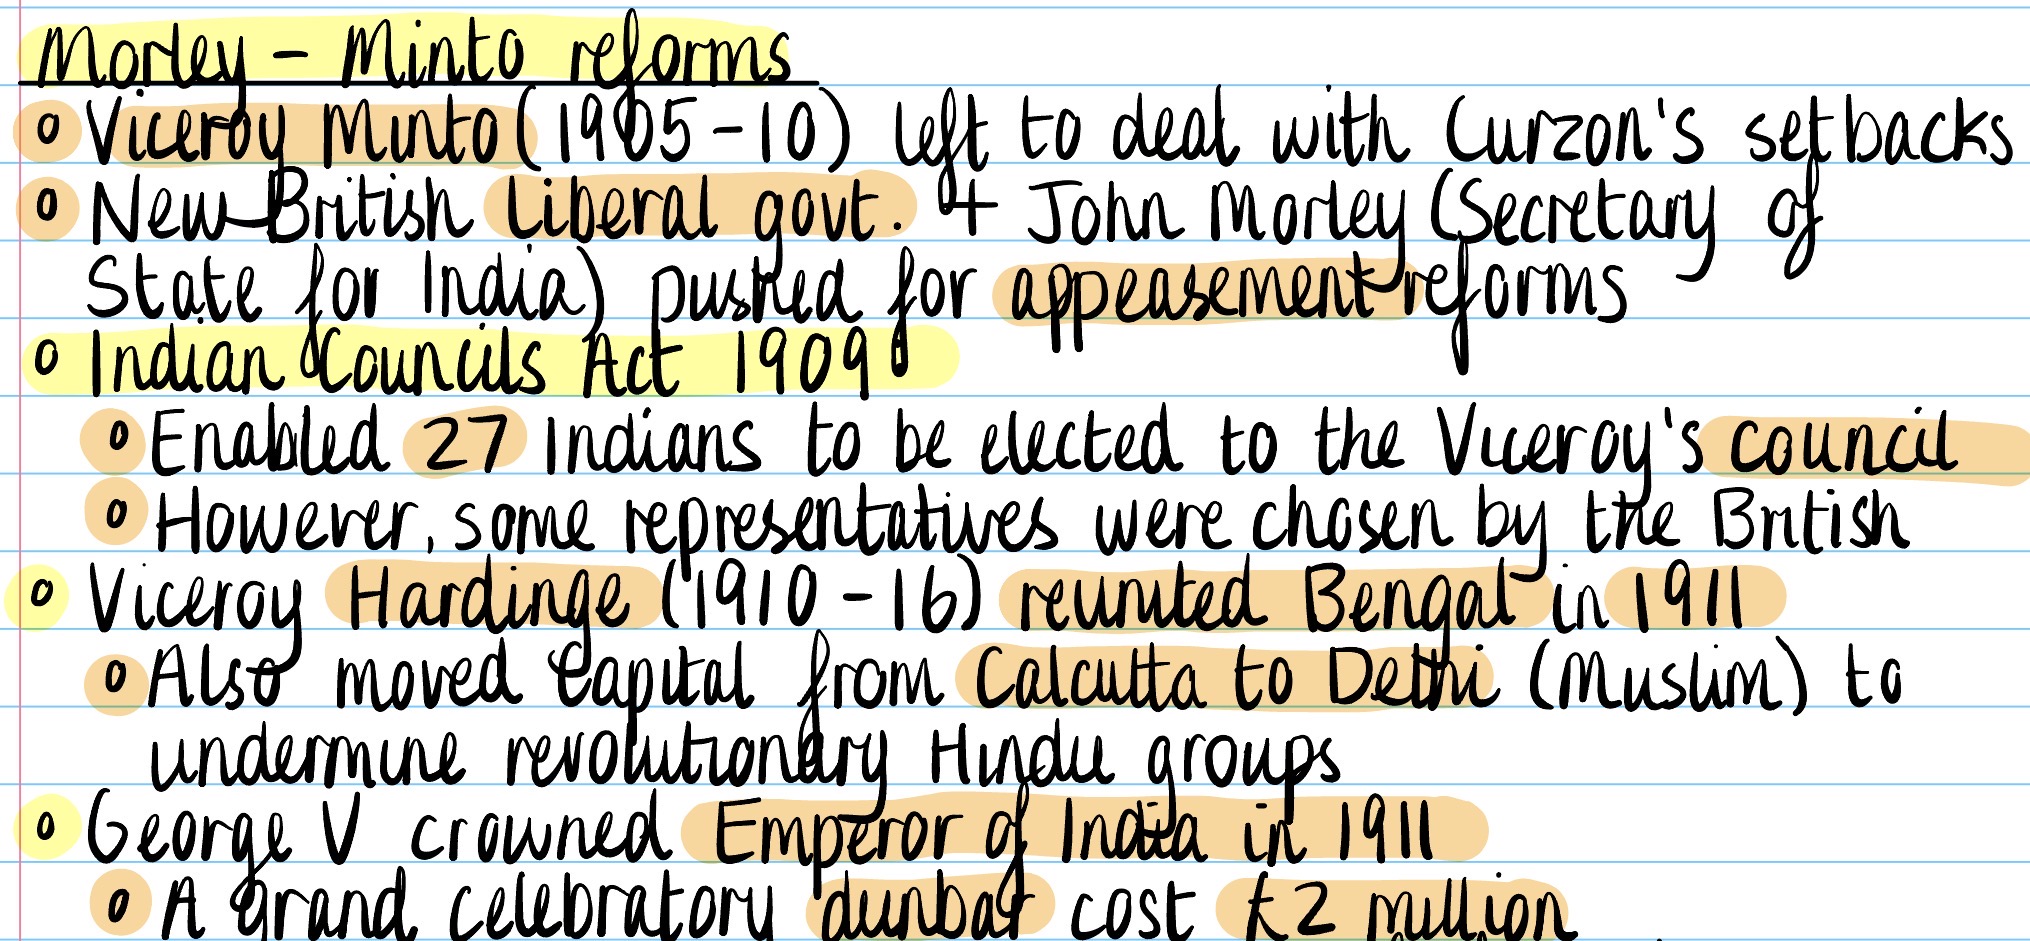 Morley - Minto reforms
o Viceroy Minto (1905-10) left to deal with Curzon's setbacks
o New British Liberal govt. + John Morley (Secretary of
State for India) pushed for appeasement reforms
o Indian Councils Act 1909
o Enabled 27 Indians to be elected to the Viceroy's council
o However, some representatives were chosen by the British
o Viceroy Hardinge (1910-16) reunited Bengal in 1911
o Also moved capital from Calcutta to Delhi (Muslim) to
undermine revolutionary Hindu groups
o George V crowned Emperor of India in 1911
o A grand celebratory dunbar cost £2 million